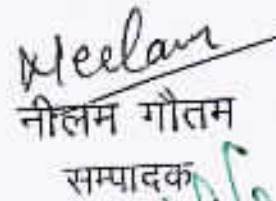 Neelam
नीलम गौतम
सम्पादक